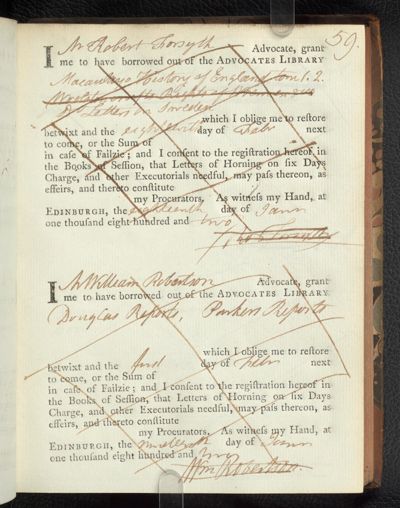 59.
I Mr Robert Forsyth Advocate, grant
me to have borrowed out of the ADVOCATES LIBRARY
Macaulays History of England tom 1. 2.
Rights of Women
Letters on Sweden
which I oblige me to restore
betwixt and the eighteenth day of Febr next
to come, or the Sum of
in case of Failzie; and I consent to the registration hereof in
the Books of Session, that Letters of Horning on six Days
Charge, and other Executorials needful, may pass thereon, as
effeirs, and thereto constitute
my Procurators. As witness my Hand, at
EDINBURGH, the eighteenth day of Janr
one thousand eight hundred and two
Rob Forsyth
I Mr William Robertson Advocate, grant
me to have borrowed out of the ADVOCATES LIBRARY
Douglas Reports, Parkers Reports
which I oblige me to restore
betwixt and the day of Febr next
to come, or the Sum of
in case of Failzie; and I consent to the registration hereof in
the Books of Session, that Letters of Horning on six Days
Charge, and other Executorials needful, may pass thereon, as
effeirs, and thereto constitute
my Procurators. As witness my Hand, at
EDINBURGH, the nineteenth day of Janr
one thousand eight hundred and two
Wm Robertson